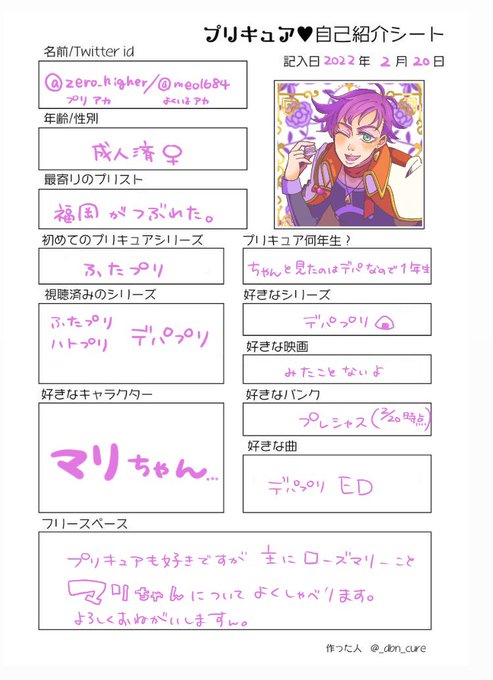 プリキュア♥自己紹介シート
名前/Twitter id
記入日2022年 2月20日
@zero_higher/@meo1684
プリアカ よくいるアカ
年齢/性別
成人済♀
最寄りのプリスト
福岡がつぶれた。
初めてのプリキュアシリーズ
ふたプリ
プリキュア何年生?
ちゃんと見たのはデパなので1年生
視聴済みのシリーズ
ふたプリ
ハトプリ
デパプリ
好きなシリーズ
デパプリ🍙
好きな映画
みたことないよ
好きなキャラクター
マリちゃん…
好きなバンク
プレシャス(2/20時点)
好きな曲
デパプリ ED
フリースペース
プリキュアも好きですが 主にローズマリーこと
マリちゃんについてよくしゃべります。
よろしくおねがいしますん。
作った人 @_dbn_cure